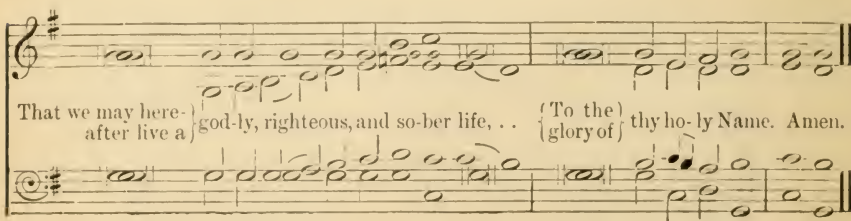 That we may here-
after live a} god-ly, righteous, and so-ber life, . . {To the
glory of} thy ho-ly Name. Amen.